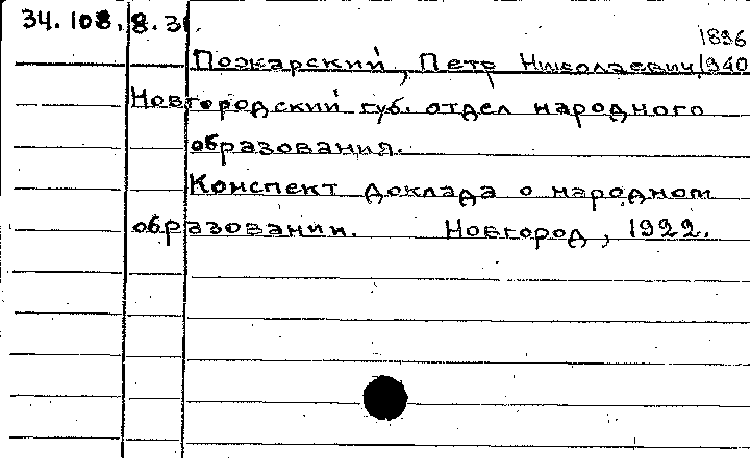 34.108.8.31.
1896
Пожарский, Петр Николаевич, 1940
Новгородский губ. отдел народного
образования.
Конспект доклада о народном
образовании. Новгород, 1922.